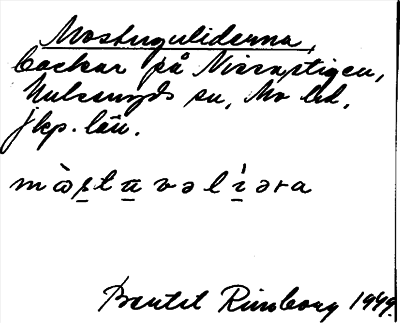 Mostuguliderna,
backar på Nissastigen,
Mulseryds sn, Mo hd,
Jkp. län.
mὼʂtu̲vəlì̲əra
Bertil Rimborg 1949.